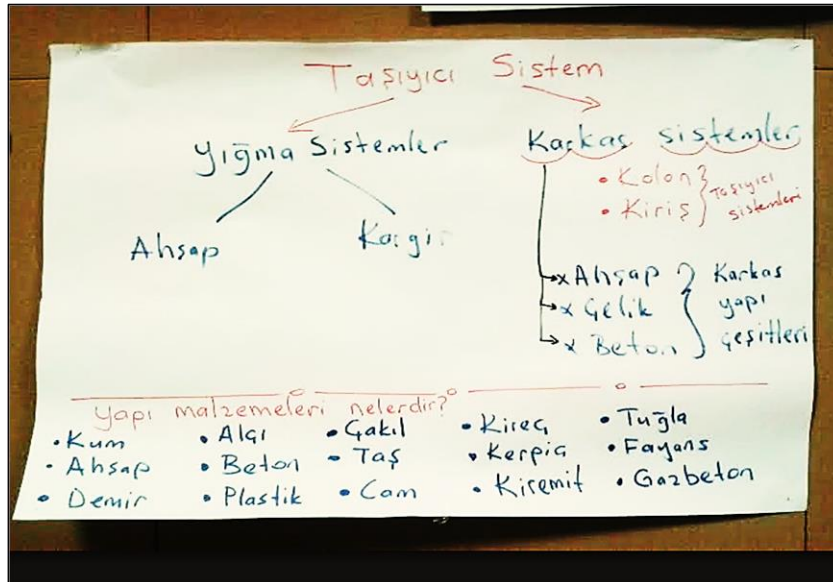 Taşıyıcı Sistem
Yığma Sistemler
Ahşap
Kargir
Karkas sistemler
• Kolon
• Kiriş
Taşıyıcı
sistemleri
x Ahşap
x Çelik
x Beton
Karkas
yapı
çeşitleri
Yapı malzemeleri nelerdir?
• Kum
• Ahşap
• Demir
• Alçı
• Beton
• Plastik
• Çakıl
• Taş
• Cam
• Kireç
• Kerpiç
• Kiremit
• Tuğla
• Fayans
• Gazbeton